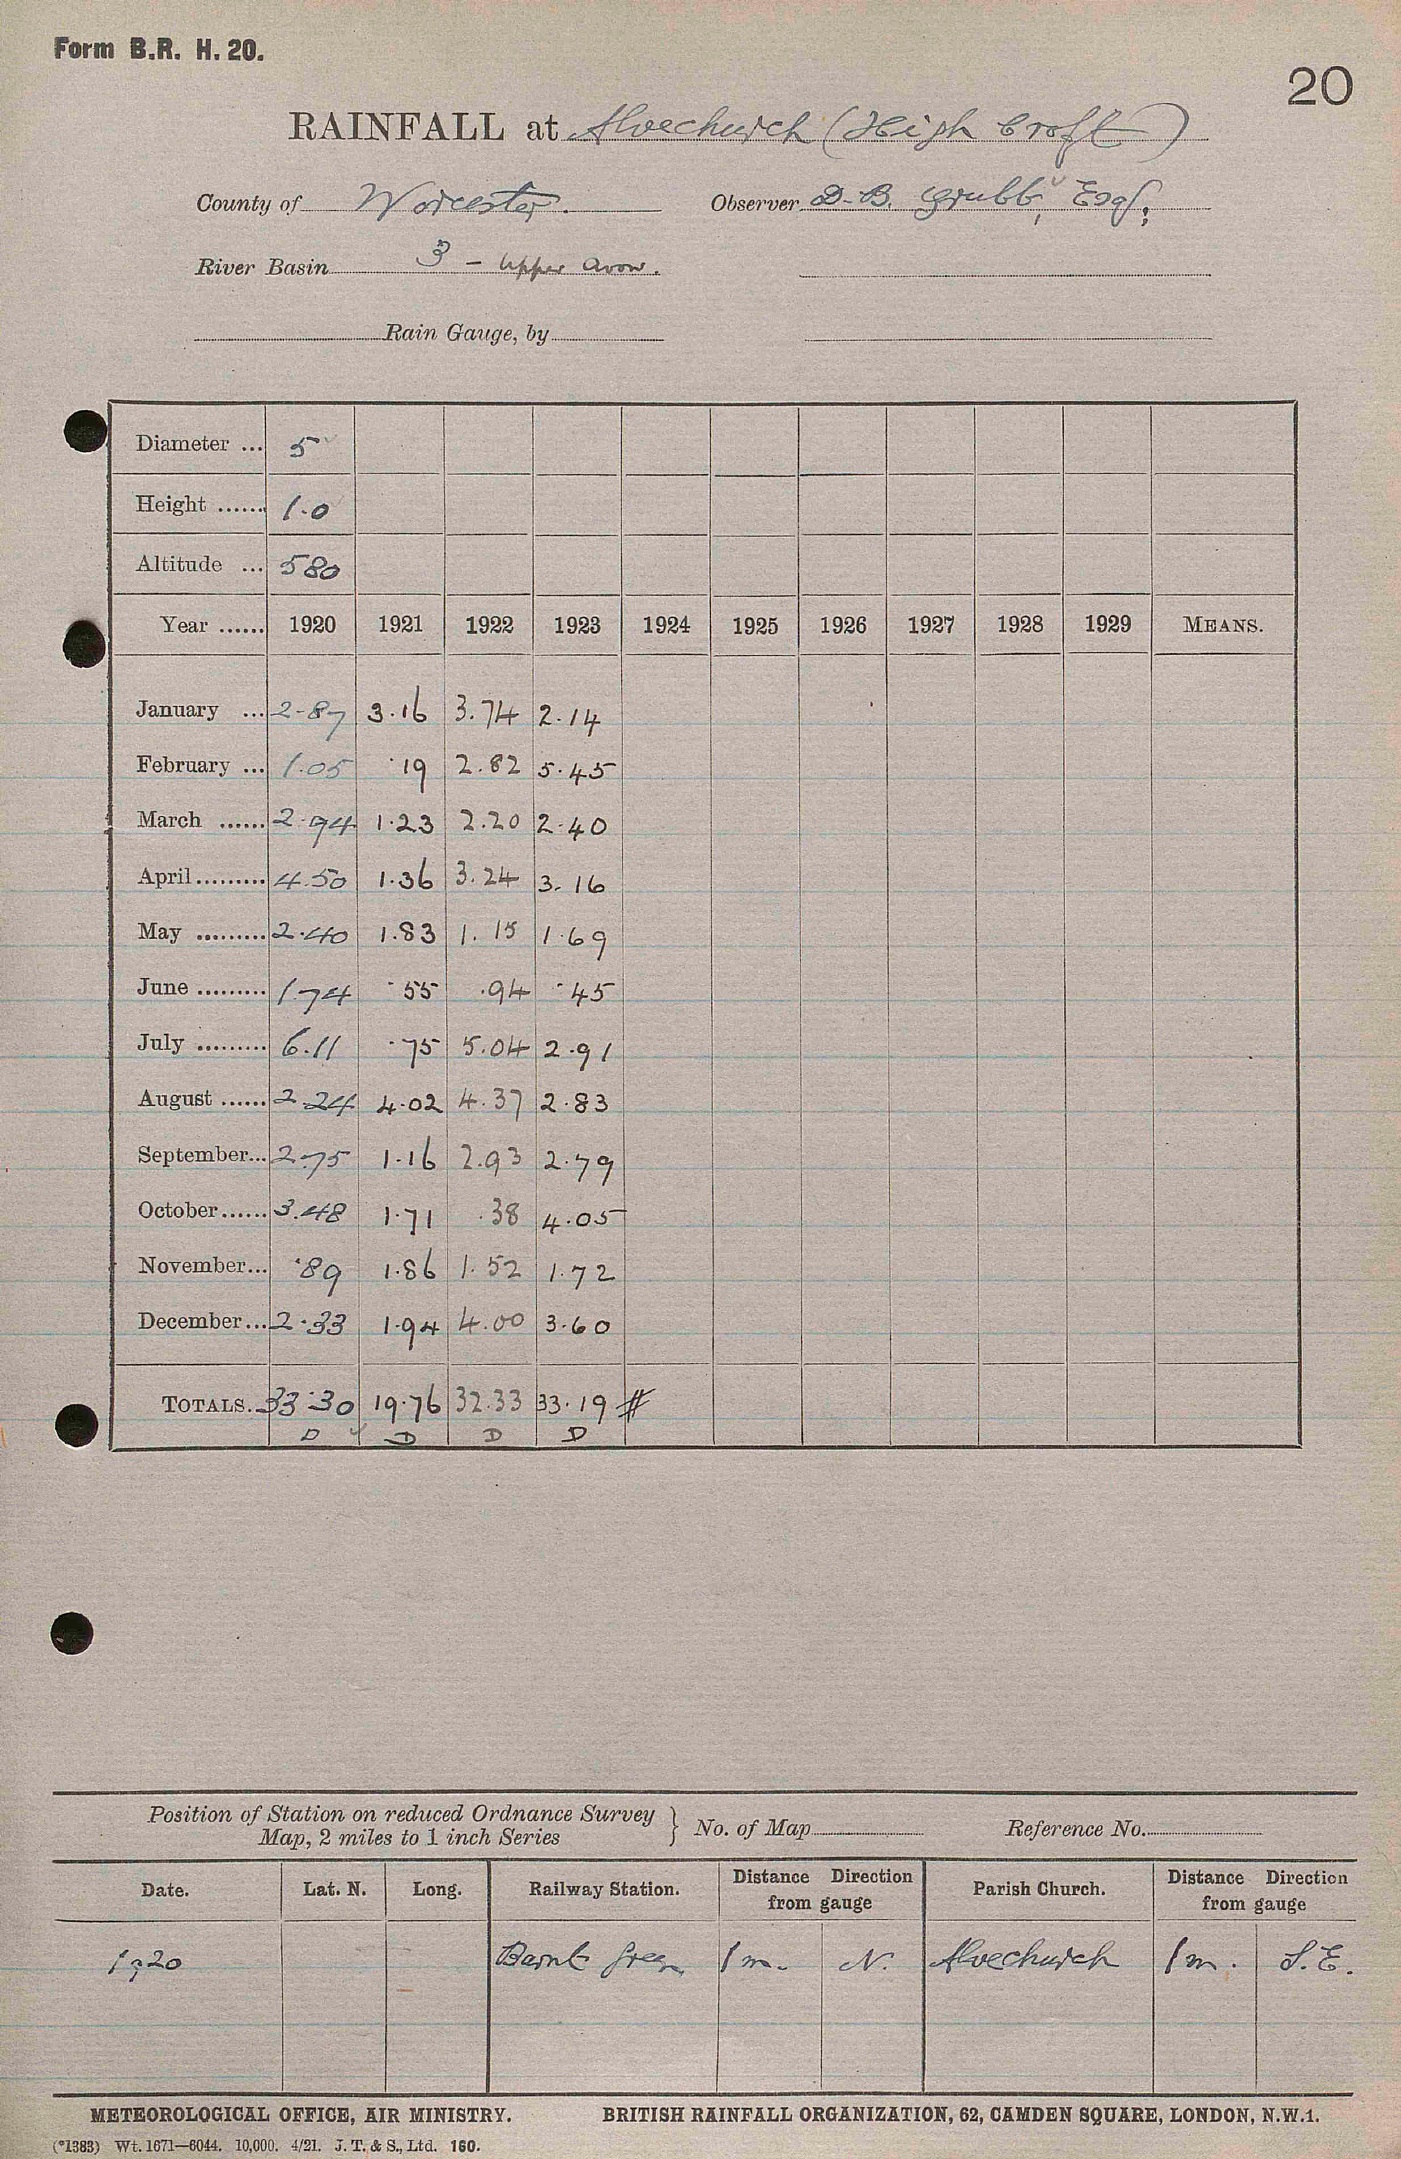 Form B.R. H. 20.
20
RAINFALL at Alvechurch (High Croft)
County of Worcester. Observer D.B. Grubb, Esq.,
River Basin 3 - Upper Avon.
Rain Gauge, by
Diameter ... 5
Height ...... 1.0
Altitude ... 580
Year ...... 1920 1921 1922 1923 1924 1925 1926 1927 1928 1929 MEANS.
January ... 2.87 3.16 3.74 2.14
February ... 1.05 .19 2.82 5.45
March ...... 2.94 1.23 2.20 2.40
April......... 4.50 1.36 3.24 3.16
May ......... 2.40 1.83 1.15 1.69
June ......... 1.74 .55 .94 .45
July ......... 6.11 .75 5.04 2.91
August ...... 2.24 4.02 4.37 2.83
September... 2.75 1.16 2.93 2.79
October...... 3.48 1.71 .38 4.05
November... .89 1.86 1.52 1.72
December... 2.33 1.94 4.00 3.60
TOTALS. 33.30 19.76 32.33 33.19 #
D D D D
Position of Station on reduced Ordnance Survey
Map, 2 miles to 1 inch Series } No. of Map Reference No.
Date. Lat. N. Long. Railway Station. Distance Direction from gauge Parish Church. Distance Direction from gauge
1920 Barnt Green 1 m. N. Alvechurch 1 m. S.E.
METEOROLOGICAL OFFICE, AIR MINISTRY. BRITISH RAINFALL ORGANIZATION, 62, CAMDEN SQUARE, LONDON, N.W.1.
(*1383) Wt. 1671—6044. 10,000. 4/21. J. T. & S., Ltd. 160.